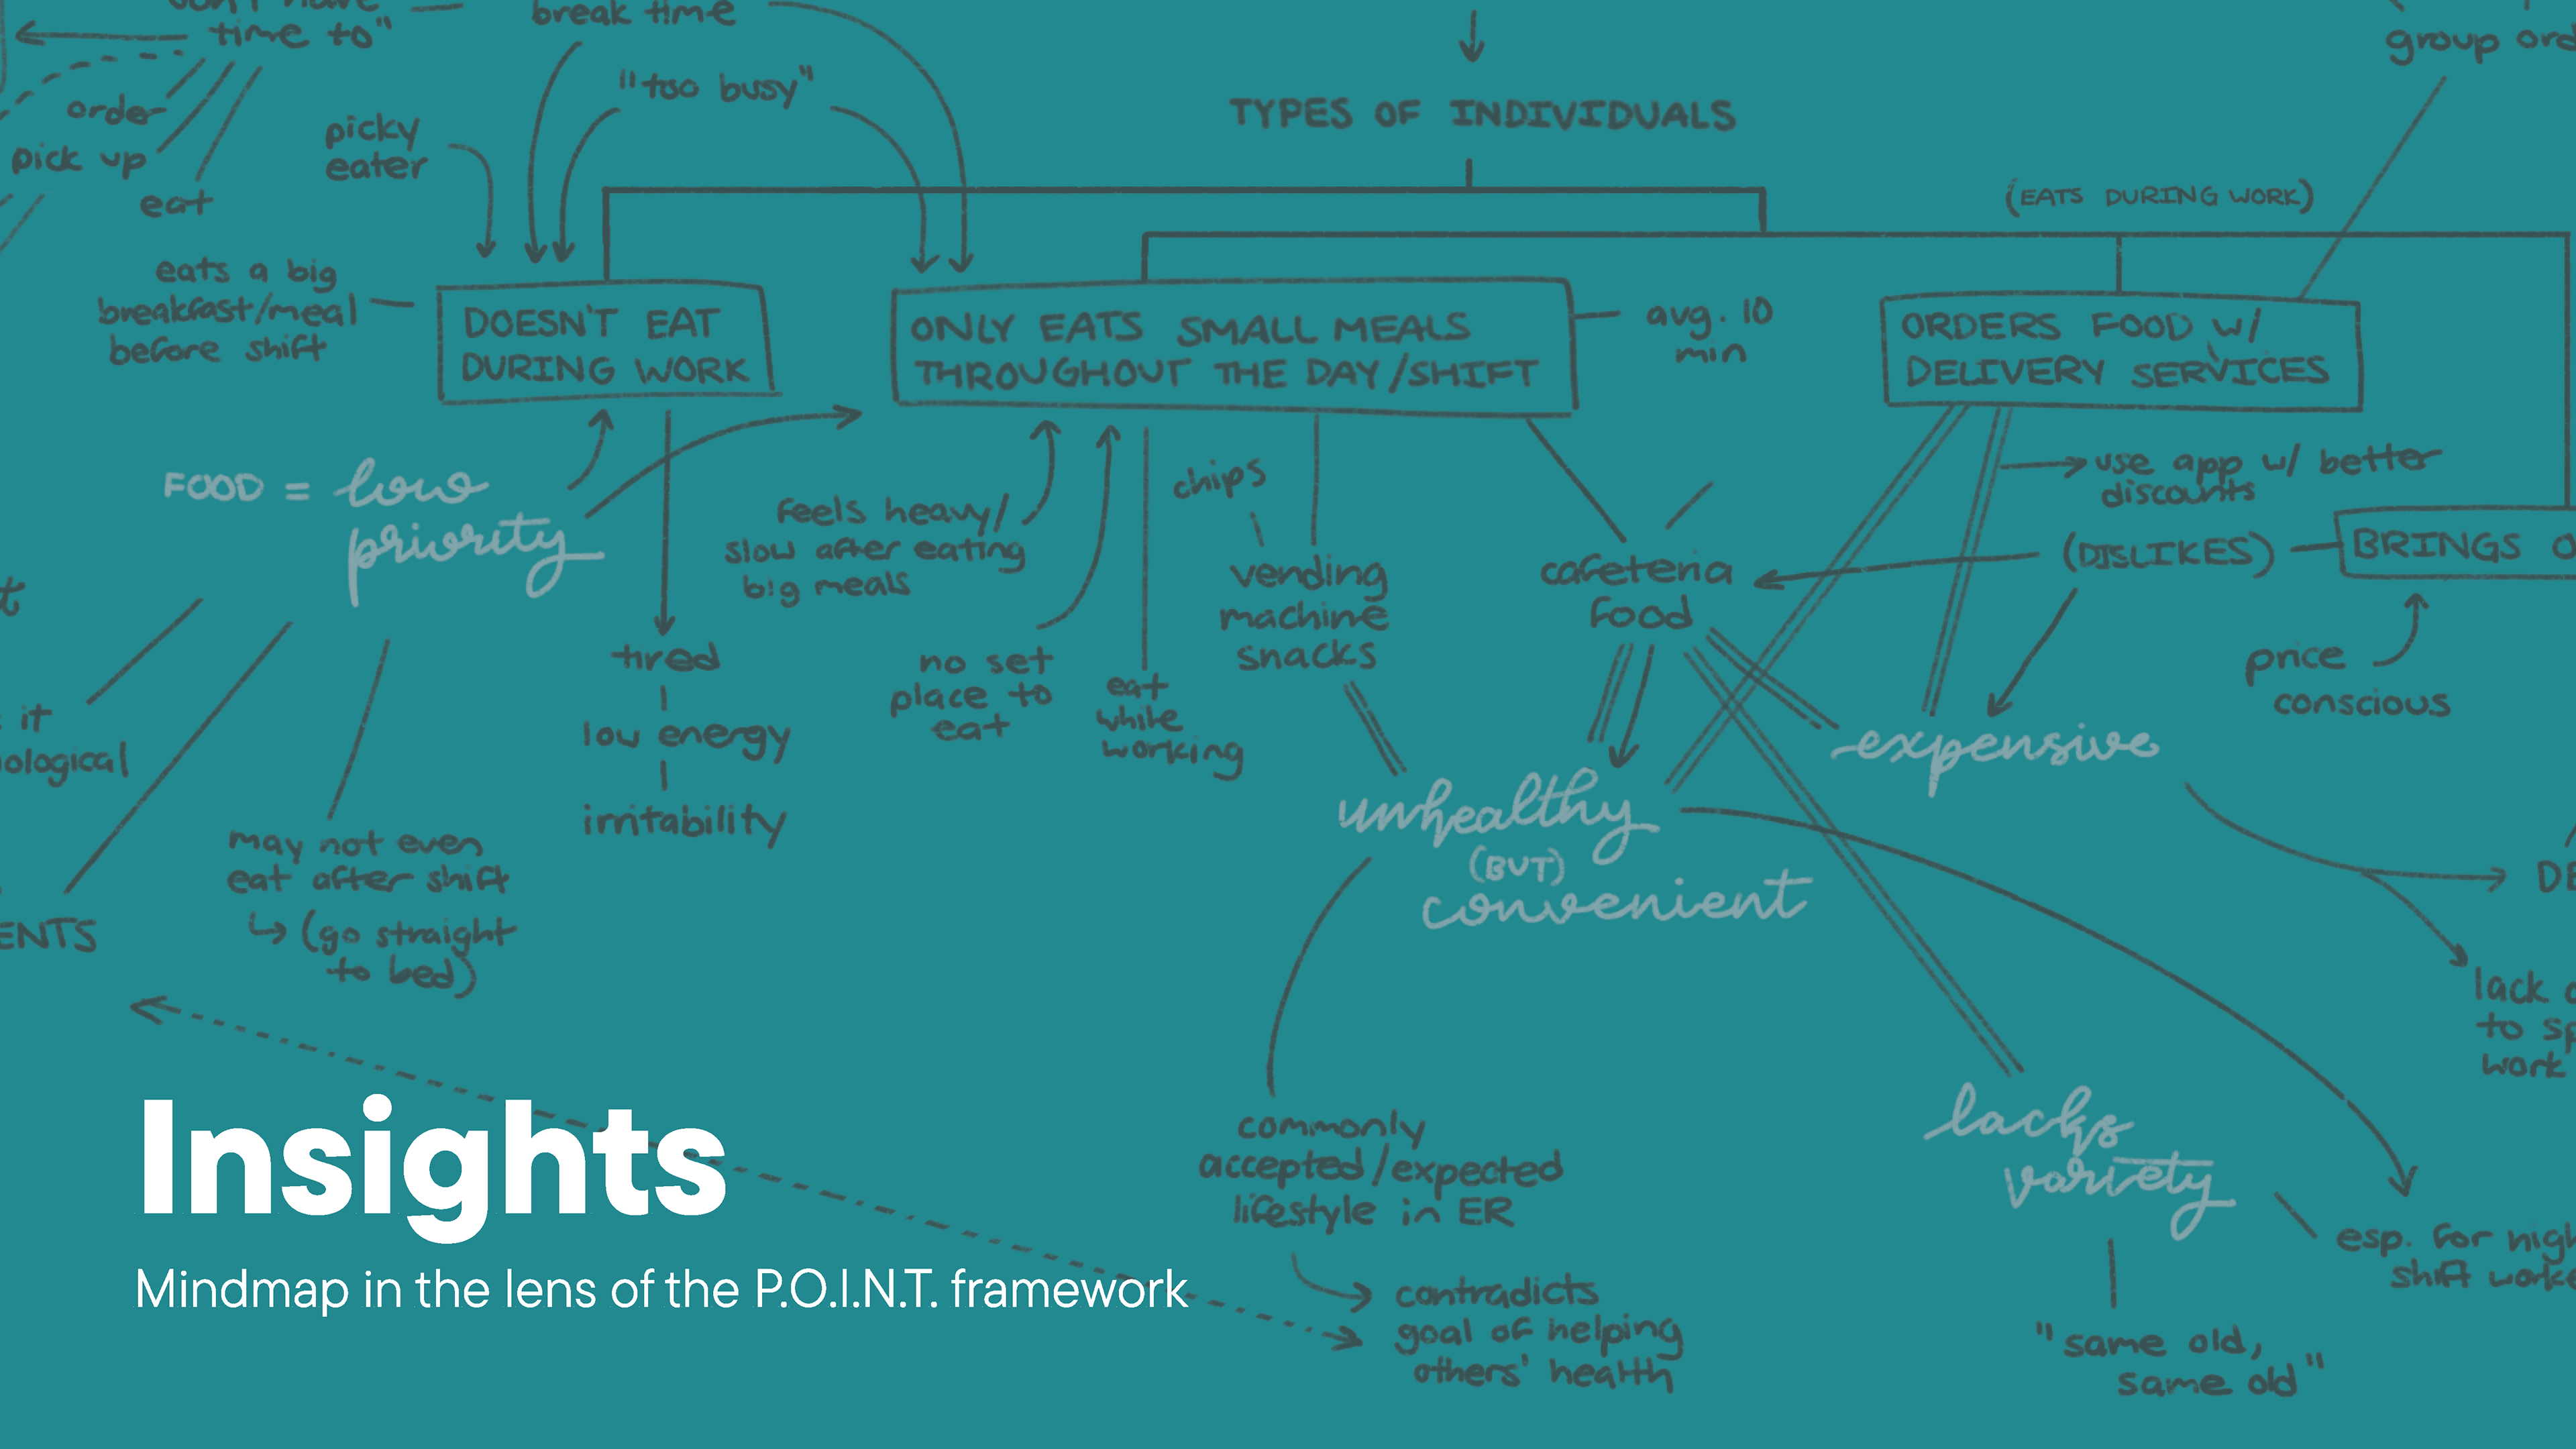 time to"
break time
"too busy"
order
pick up
eat
picky
eater
TYPES OF INDIVIDUALS
group
(EATS DURING WORK)
eats a big
breakfast/meal
before shift
DOESN'T EAT
DURING WORK
ONLY EATS SMALL MEALS
THROUGHOUT THE DAY/SHIFT
avg. 10
min
ORDERS FOOD W/
DELIVERY SERVICES
FOOD = low
priority
feels heavy/
slow after eating
big meals
chips
vending
machine
snacks
cafeteria
food
use app w/ better
discounts
(DISLIKES)
BRINGS
price
conscious
it
tired
low energy
irritability
no set
place to
eat
eat
while
working
expensive
unhealthy
(BUT)
convenient
may not even
eat after shift
(go straight
to bed)
lack
to
work
commonly
accepted/expected
lifestyle in ER
contradicts
goal of helping
others' health
lacks
variety
esp. for
shift
"same old,
same old"
Insights
Mindmap in the lens of the P.O.I.N.T. framework